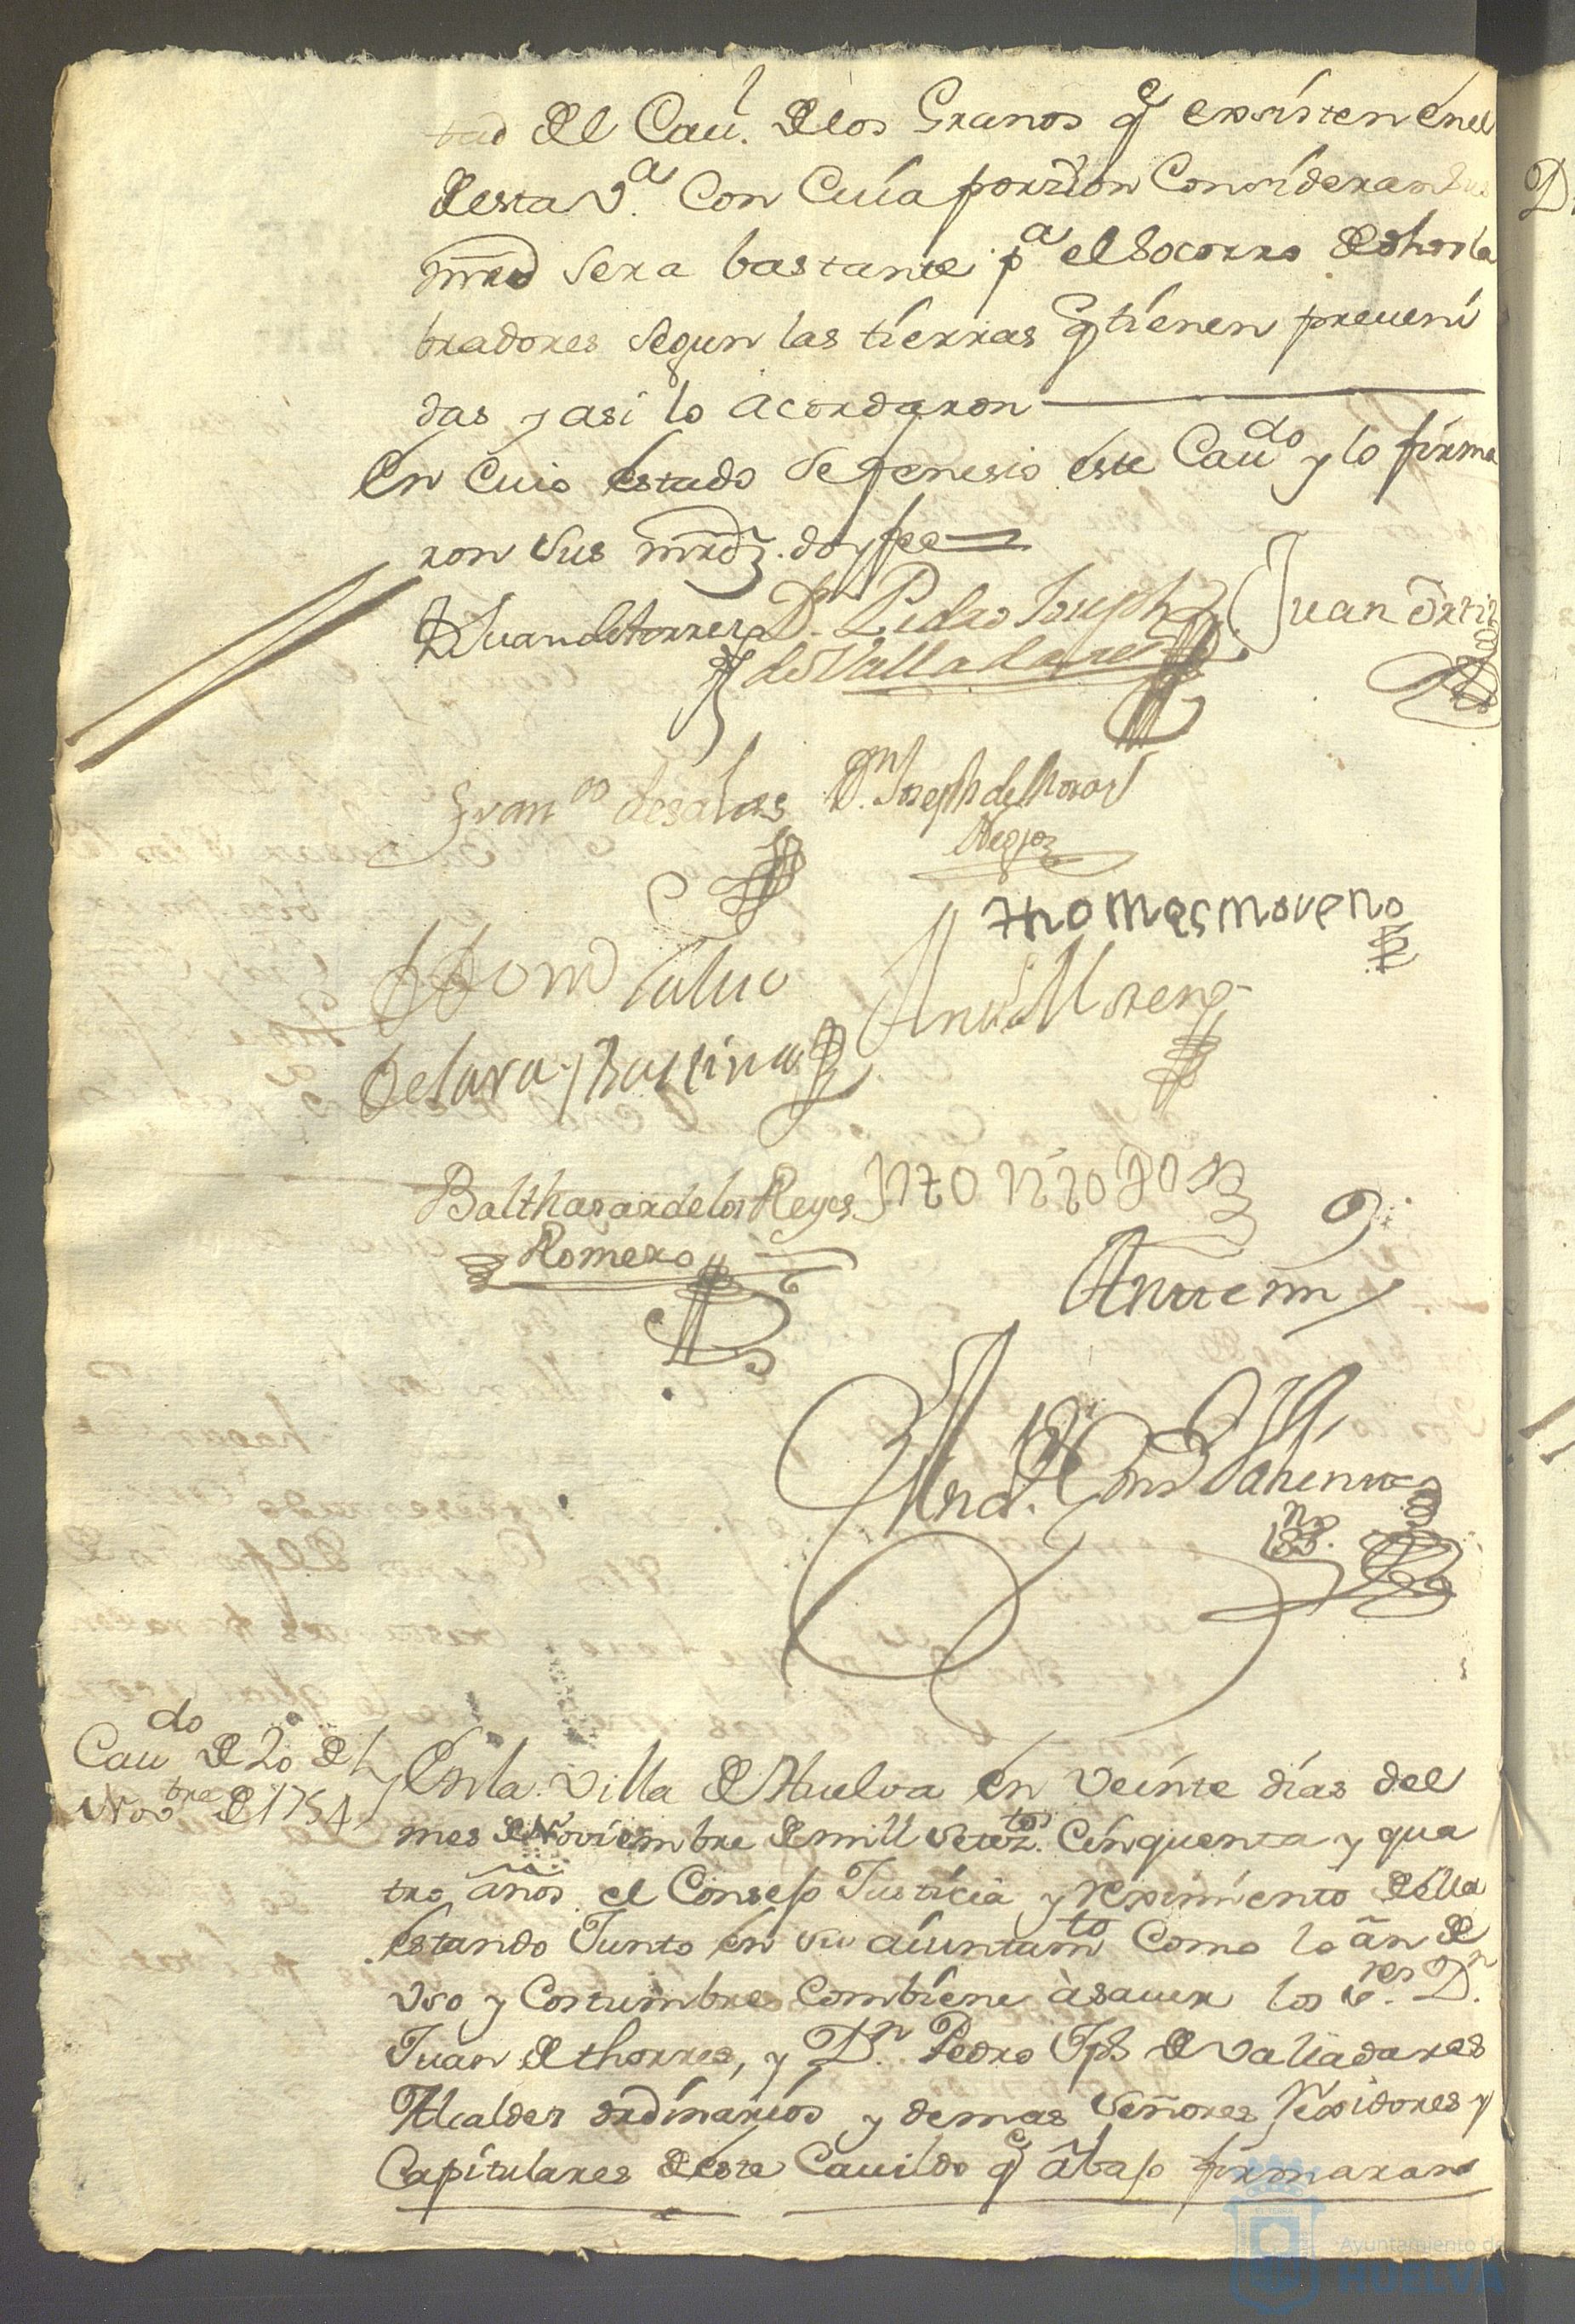 tad del Cau.l de los Granos q.e existen en el
desta V.a Con Cuia porzion Consideran Sus
mrd sera bastante p.a el Socorro de dhos la
bradores segun las tierras q tienen preueni
das y asi lo acordaron
En cuio estado se fenesio este Cau.do y lo firma
ron Sus mrdz. doy fee
D Juan de torres
D.n Pedro Joseph
de Valladares
Juan Ortiz
Fran.co de salas
D.n Joseph de
thomas moreno
de Lara y
Moreno
Balthasar de los Reyes
Romero
Ante mi
Cau.do de 20 de
Nov.bre de 1754
En la Villa de Huelva en veinte dias del
mes de Noviembre de mill setez.tos Cinquenta y qua
tro años el Consejo Justicia y reximiento della
estando Junto en su aiuntam.to Como lo an de
vso y Costumbre Combiene à sauer los S.res D.n
Juan de thorres, y D.n Pedro Jph de Valladares
Alcaldes ordinarios y demas Señores Rexidores y
Capitulares deste Cauildo q.e abajo firmaran
Ayuntamiento de
HUELVA